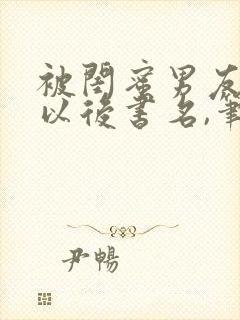 被閨蜜男友
以後書名,筆
尹暢